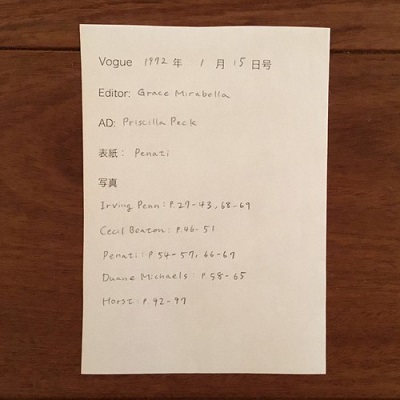 Vogue 1972 年 1 月 15 日号
Editor: Grace Mirabella
AD: Priscilla Peck
表紙: Penati
写真
Irving Penn: P.27-43, 68-69
Cecil Beaton: P.46-51
Penati: P 54-57, 66-67
Duane Michaels: P 58-65
Horst: P. 92-97